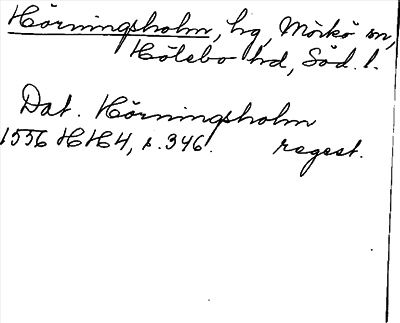 Hörningsholm, hg, Mörkö sn,
Hölebo hd, Söd. l.
Dat. Hörningsholm
1556 HH4, s. 346. regest.